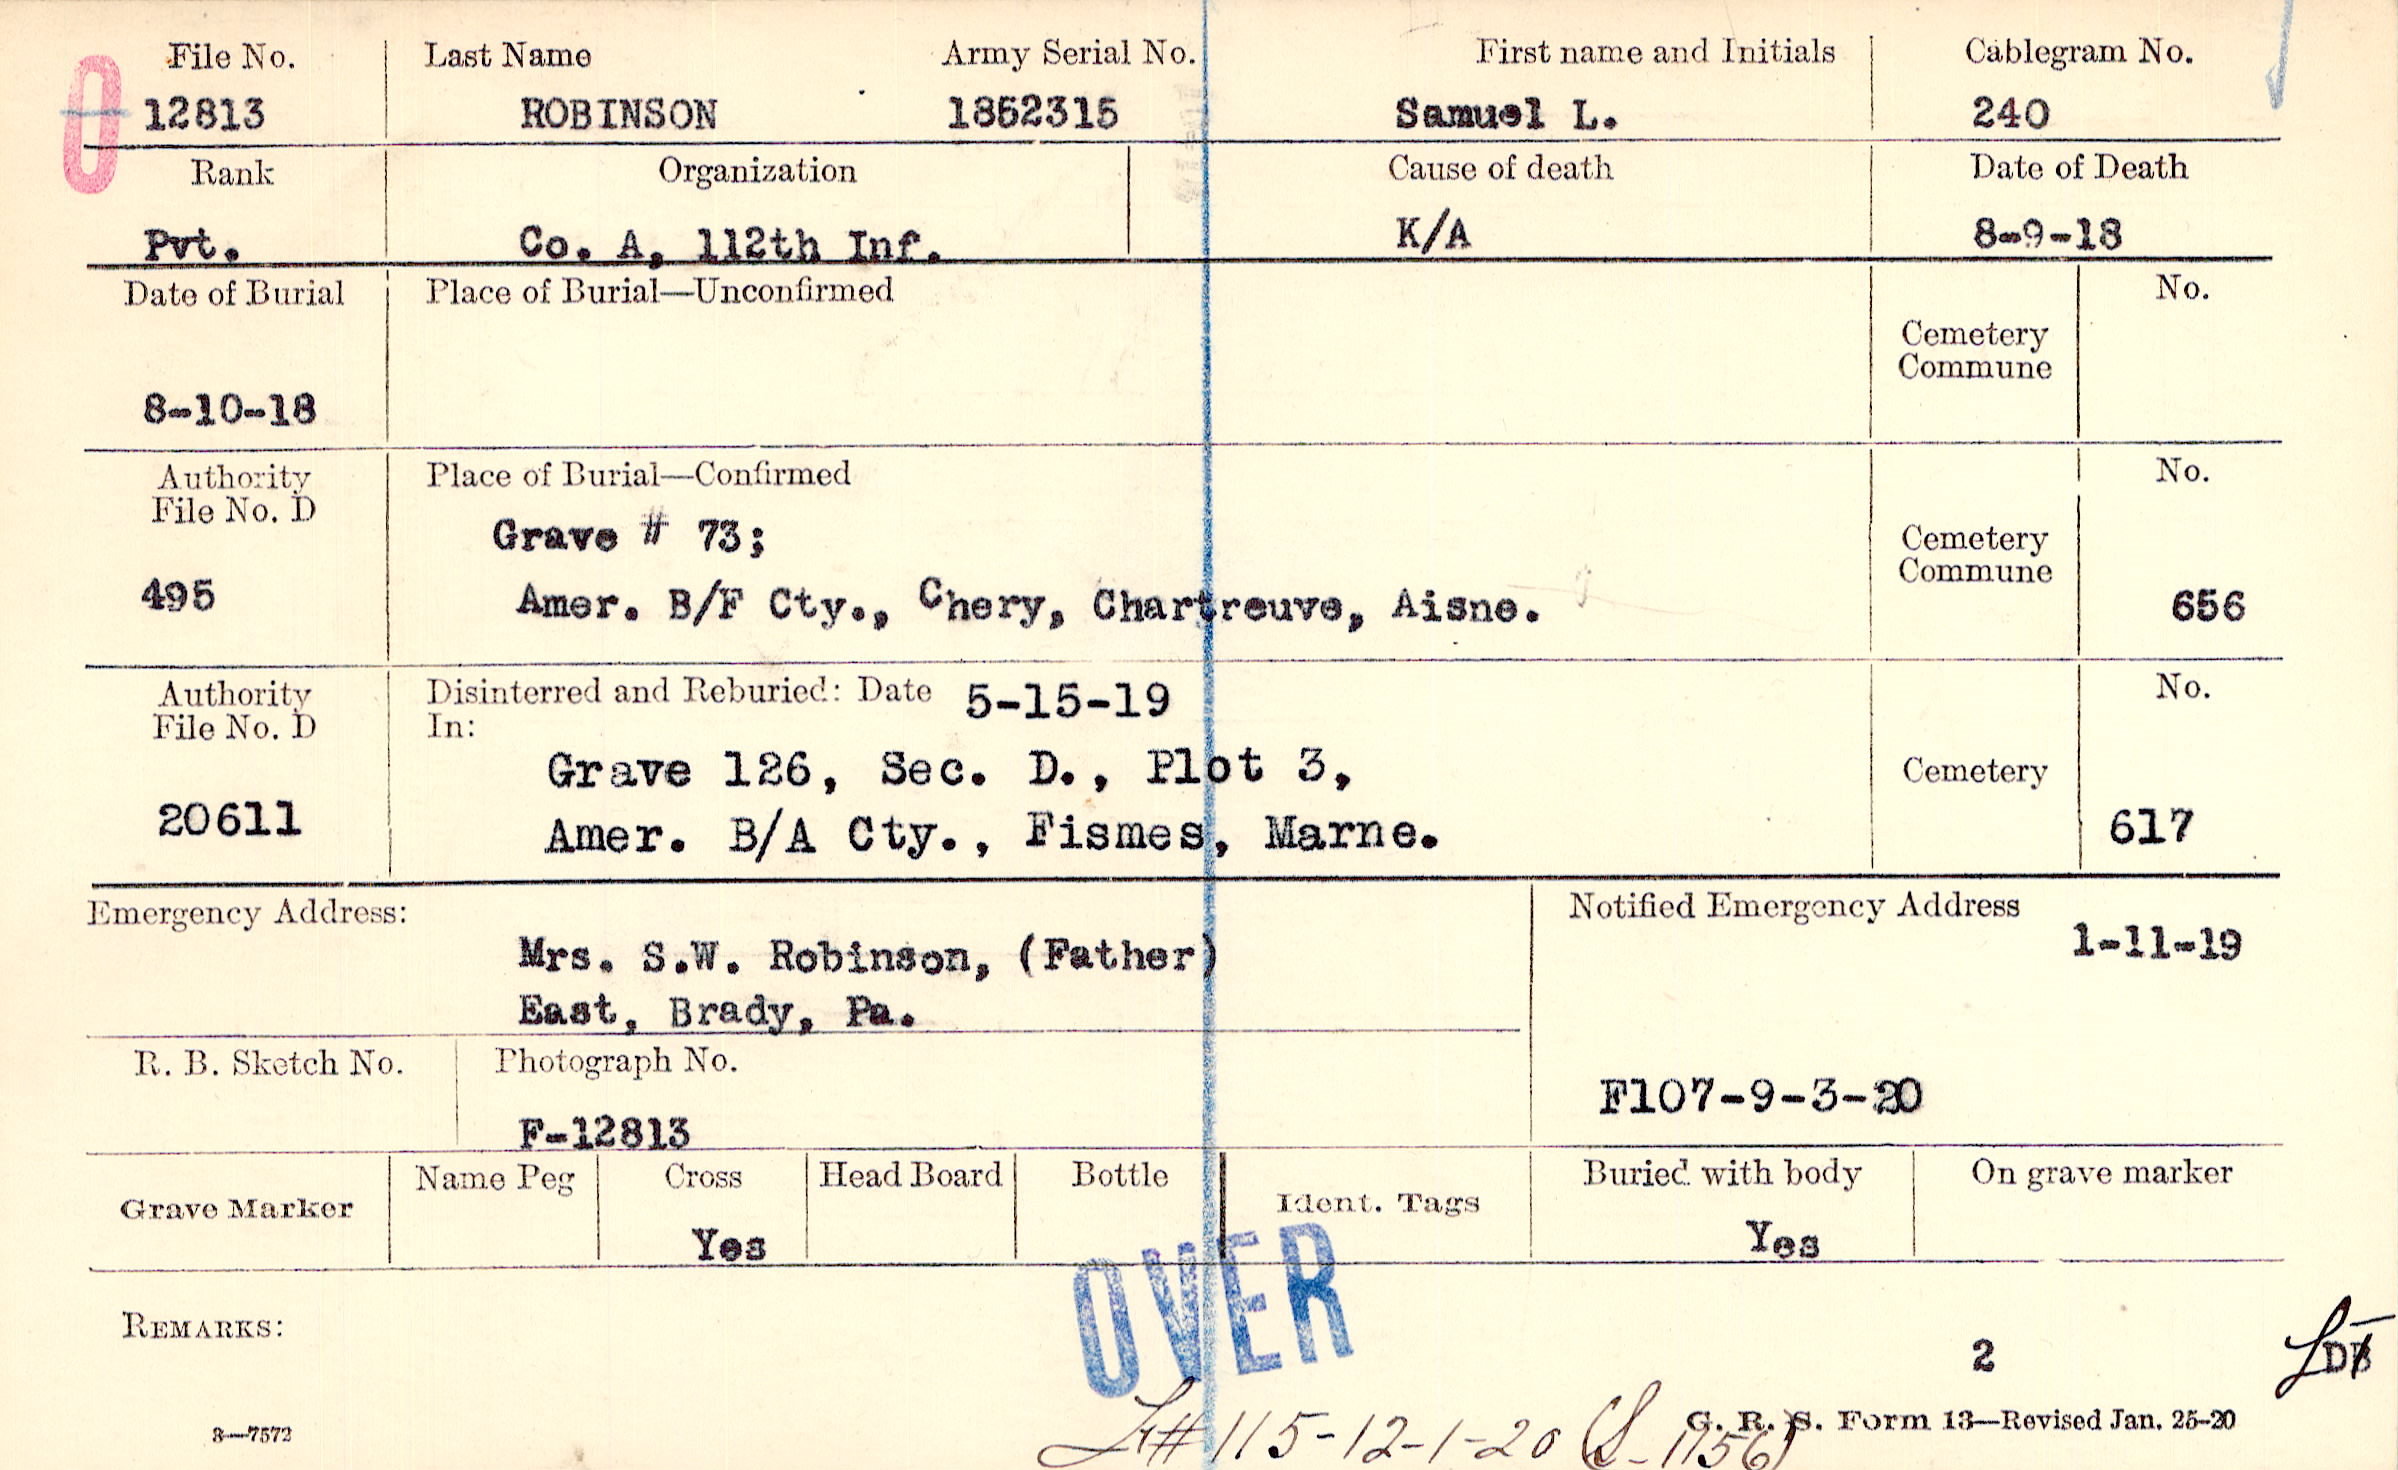 File No. Last Name Army Serial No. First name and Initials Cablegram No.
0 12813 ROBINSON 1852315 Samuel L. 240
Rank Organization Cause of death Date of Death
Pvt. Co. A, 112th Inf. K/A 8-9-18
Date of Burial Place of Burial—Unconfirmed No.
Cemetery
Commune
8-10-18
Authority Place of Burial—Confirmed No.
File No. D
Grave # 73; Cemetery
Commune
495 Amer. B/F Cty., Chery, Chartreuve, Aisne. 656
Authority Disinterred and Reburied: Date 5-15-19 No.
File No. D In:
Grave 126, Sec. D., Plot 3, Cemetery
20611 Amer. B/A Cty., Fismes, Marne. 617
Emergency Address: Notified Emergency Address
Mrs. S.W. Robinson, (Father) 1-11-19
East, Brady, Pa.
R. B. Sketch No. Photograph No.
F-12813 F107-9-3-20
Grave Marker Name Peg Cross Head Board Bottle Ident. Tags Buried with body On grave marker
Yes Yes
OVER
REMARKS:
2
3—7572 G. R. S. Form 13—Revised Jan. 25-20
#115-12-1-20 (L-1156)